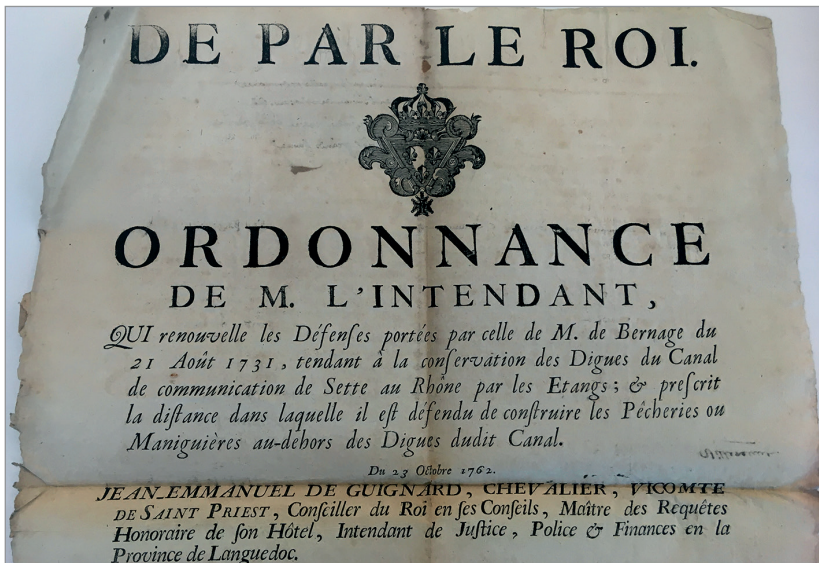 DE PAR LE ROI.
ORDONNANCE
DE M. L'INTENDANT,
QUI renouvelle les Défenſes portées par celle de M. de Bernage du
21 Août 1731, tendant à la conſervation des Digues du Canal
de communication de Sette au Rhône par les Etangs; & preſcrit
la diſtance dans laquelle il eſt défendu de conſtruire les Pécheries ou
Maniguières au-dehors des Digues dudit Canal.
Du 23 Octobre 1762.
JEAN-EMMANUEL DE GUIGNARD, CHEVALIER, VICOMTE
DE SAINT PRIEST, Conſeiller du Roi en ſes Conſeils, Maître des Requêtes
Honoraire de ſon Hôtel, Intendant de Juſtice, Police & Finances en la
Province de Languedoc.